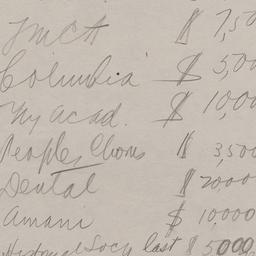 YMCA $ 7,50
Columbia $ 5,00
Ny Acad. $ 10,00
Peoples Chorus $ 3,500
Dental $ 2000
Amani $ 10,000
Historical Socy last $ 5000